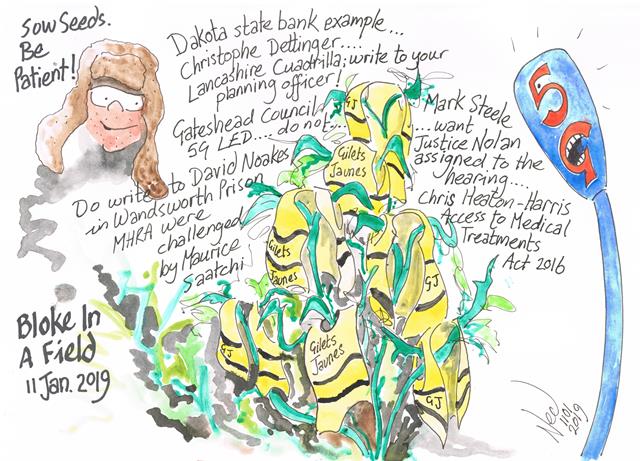 Sow Seeds.
Be
Patient!
Dakota state bank example...
Christophe Dettinger....
Lancashire Cuadrilla; write to your
planning officer!
Gateshead Council
5G LED.... do not...
Do write to David Noakes
in Wandsworth Prison
MHRA were
challenged
by Maurice
Saatchi
Mark Steele
...want
Justice Nolan
assigned to the
hearing....
Chris Heaton-Harris
Access to Medical
Treatments
Act 2016
5G
GJ
Gilets
Jaunes
Gilets
Jaunes
GJ
GJ
Gilets
Jaunes
GJ
Bloke In
A Field
11 Jan. 2019
1101
2019